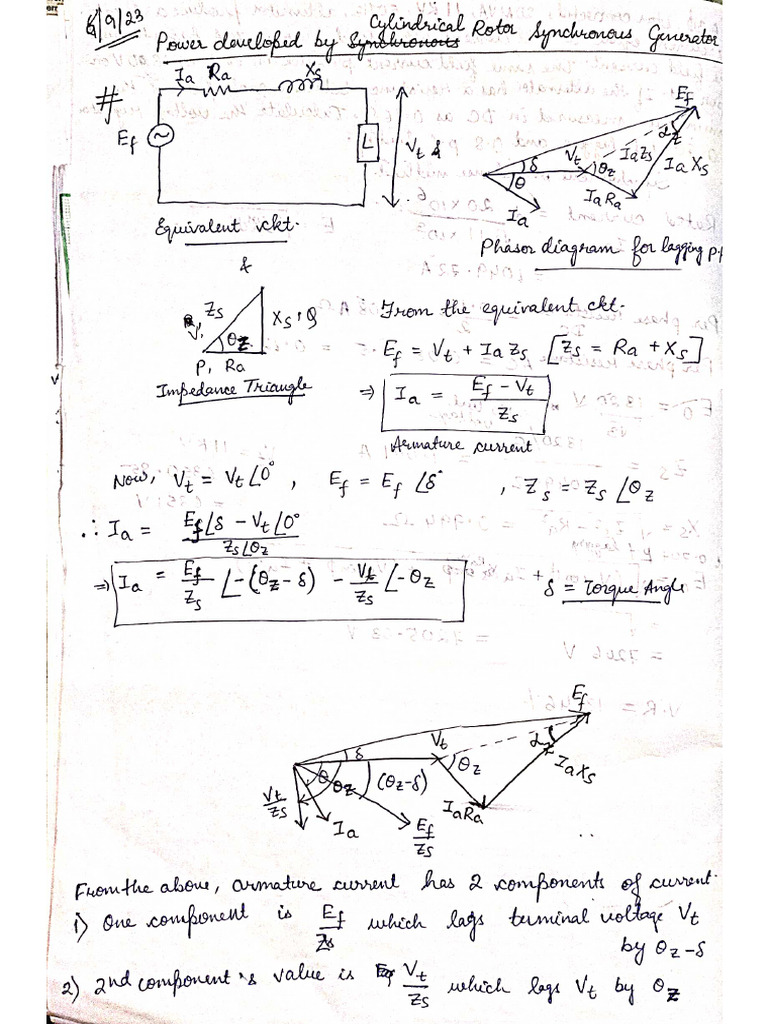 6/9/23
Power developed by Cylindrical Rotor Synchronous Generator
#
Ia Ra Xs
Ef
L
Vt
Ef
δ Vt θz Ia Zs αz
θ Ia Xs
Ia Ra
Ia
Equivalent ckt.
Phasor diagram for lagging Pf
&
Zs Xs, Q
θz
P, Ra
Impedance Triangle
From the equivalent ckt.
Ef = Vt + Ia Zs [Zs = Ra + Xs]
⇒ Ia = Ef - Vt / Zs
Armature current
Now, Vt = Vt ∠0°, Ef = Ef ∠δ°, Zs = Zs ∠θz
∴ Ia = Ef∠δ - Vt∠0° / Zs∠θz
⇒ Ia = Ef/Zs ∠-(θz-δ) - Vt/Zs ∠-θz
δ = Torque Angle
Ef
Vt αz
δ
θ θz (θz-δ) θz Ia Xs
Vt/Zs
Ia Ra
Ia Ef/Zs
From the above, armature current has 2 components of current.
1) One component is Ef/Zs which lags terminal voltage Vt
by θz-δ
2) 2nd component's value is Vt/Zs which lags Vt by θz